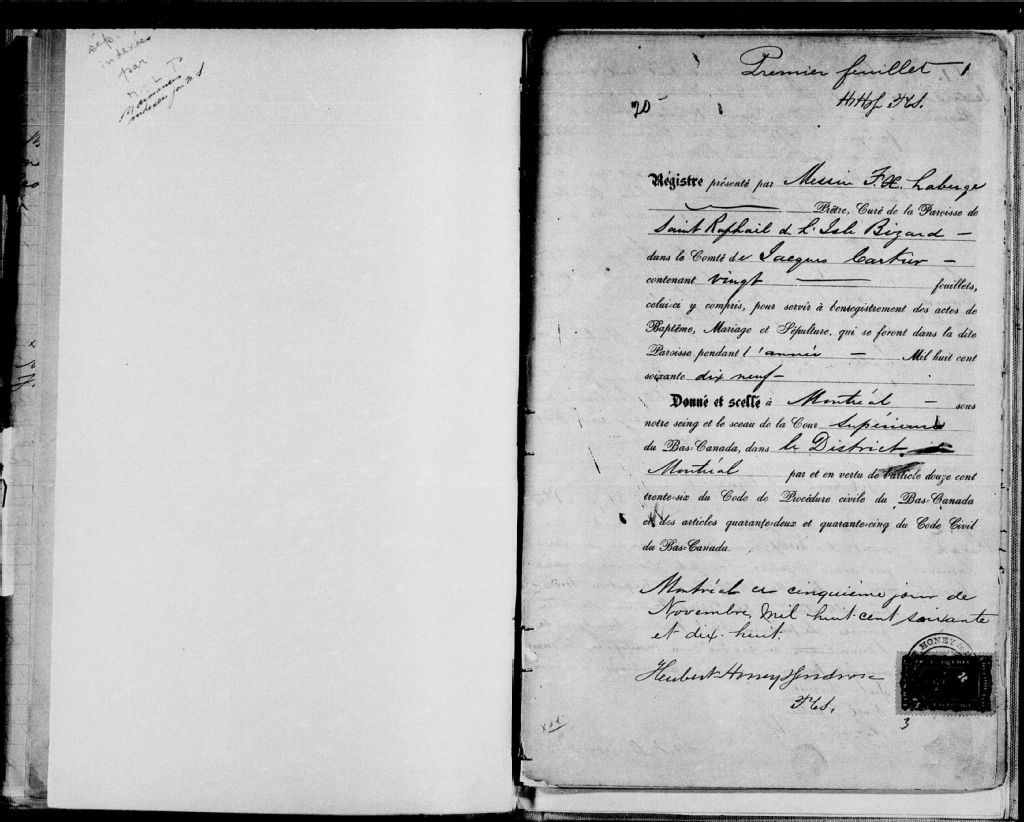 sép.
indexées
par
L T.
Mariages
indexés par
Premier feuillet 1
20
HH&G PCS.
Régistre présenté par Messire F.X. Laberge
Prêtre, Curé de la Paroisse de
Saint Raphail de L'Isle Bizard —
dans le Comté de Jacques Cartier —
contenant vingt — feuillets,
celui-ci y compris, pour servir à l'enregistrement des actes de
Baptême, Mariage et Sépulture, qui se feront dans la dite
Paroisse pendant l'année — Mil huit cent
soixante dix neuf —
Donné et scellé à Montréal — sous
notre seing et le sceau de la Cour Supérieure
du Bas-Canada, dans le District de
Montréal par et en vertu de l'article douze cent
trente-six du Code de Procédure civile du Bas-Canada
et des articles quarante-deux et quarante-cinq du Code Civil
du Bas-Canada.
Montréal ce cinquième jour de
Novembre, mil huit cent soixante
et dix-huit.
Hubert Honey Gendron
PCS.
HONEY &
3